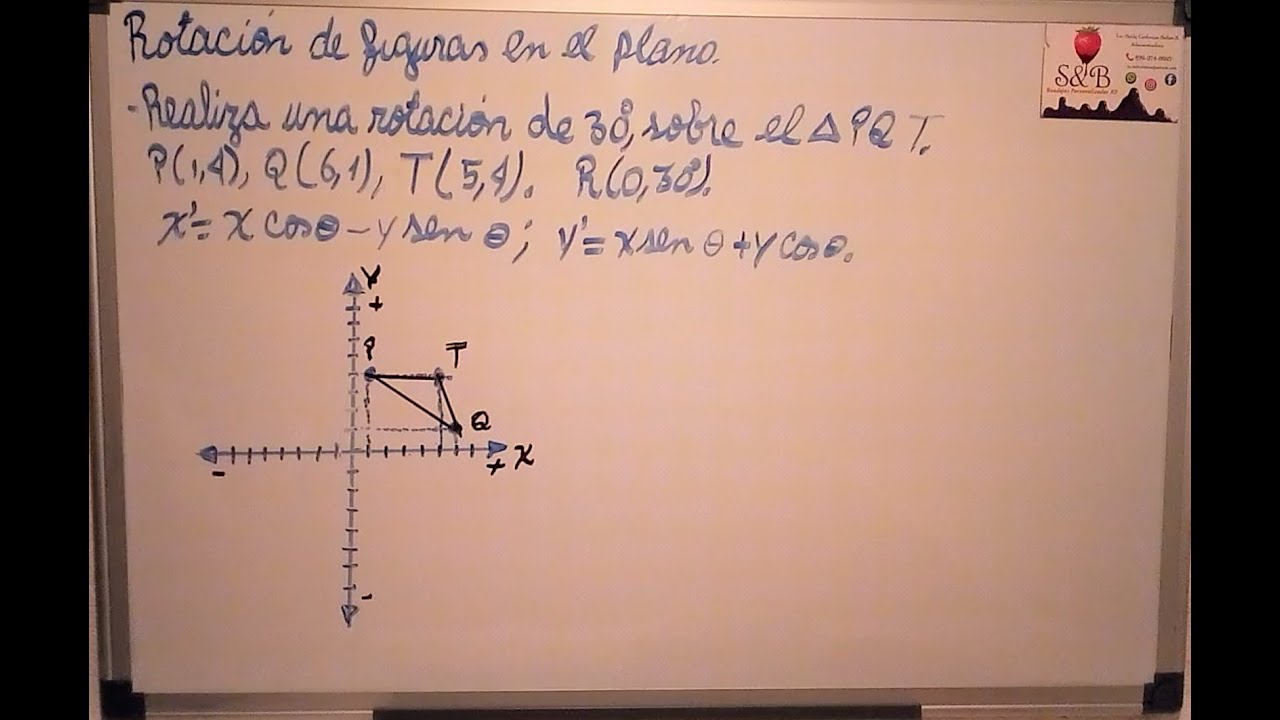 Rotación de figuras en el plano.
-Realiza una rotación de 30°, sobre el △ PQT.
P(1,4), Q(6,1), T(5,4). R(0,30°).
x'= x cosθ - y sen θ; y'= x sen θ + y cosθ.
S&B
Y
+
P
T
Q
-
+
X
-